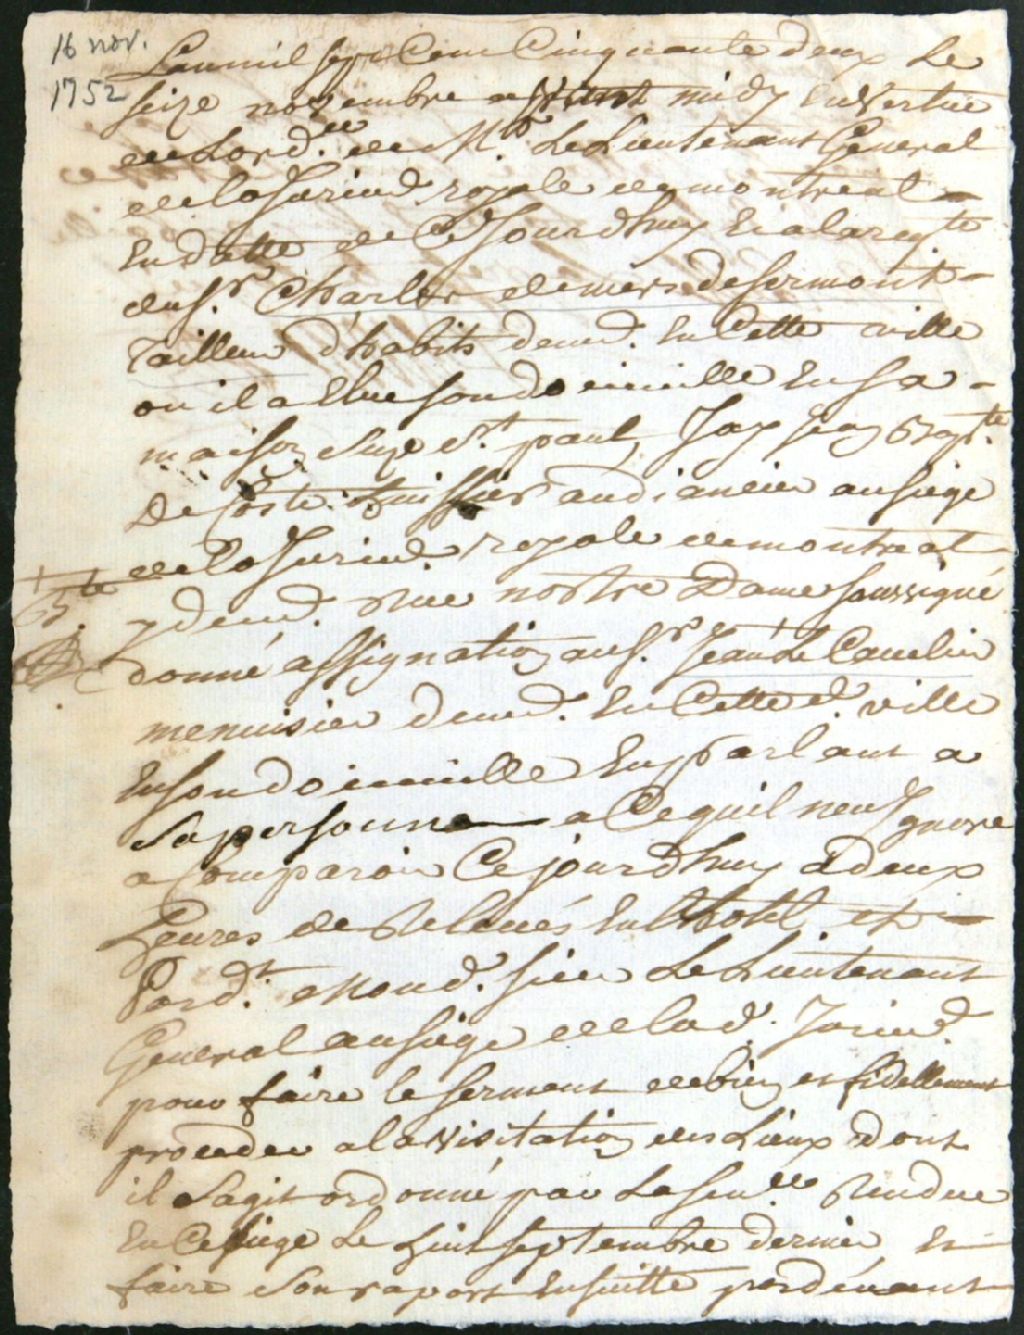 16 nov.
1752
Lan mil sept Cent Cinquante deux Le
seize novembre avant midy En Vertue
de Lord.ce de Mr. Le Lieutenant General
de la Jurisd. royale de montreal
En datte de Ce Jourdhuy Et a la req.te
du Sr. Charles demers desermont
Tailleur dhabits dem.t En Cette ville
ou il a Elue son domicille En sa
maison Size St. paul, Jay jean Bap.te
De Coste huissier audiancier au siege
de la Jurisd. royale de montreal
y dem.t Rue nostre Dame soussigné
donné assignation au Sr. Jean Le Cavelier
menuisier dem.t En Cette d. ville
En son domicille En parlant a
sa personne a Ce quil nen Ignore
a Comparoir Ce jourdhuy a deux
heures de Relevés En Lhotel et
Pard.t mond. sieur Le Lieutenant
General au siege de lad. Jurisd.
pour faire le serment de bien et fidellement
proceder a la visitation des Lieux dont
il sagit ordonné par La sen.ce Rendue
En Ce siege Le huit septembre dernier Et
faire son raport Ensuitte pardevant